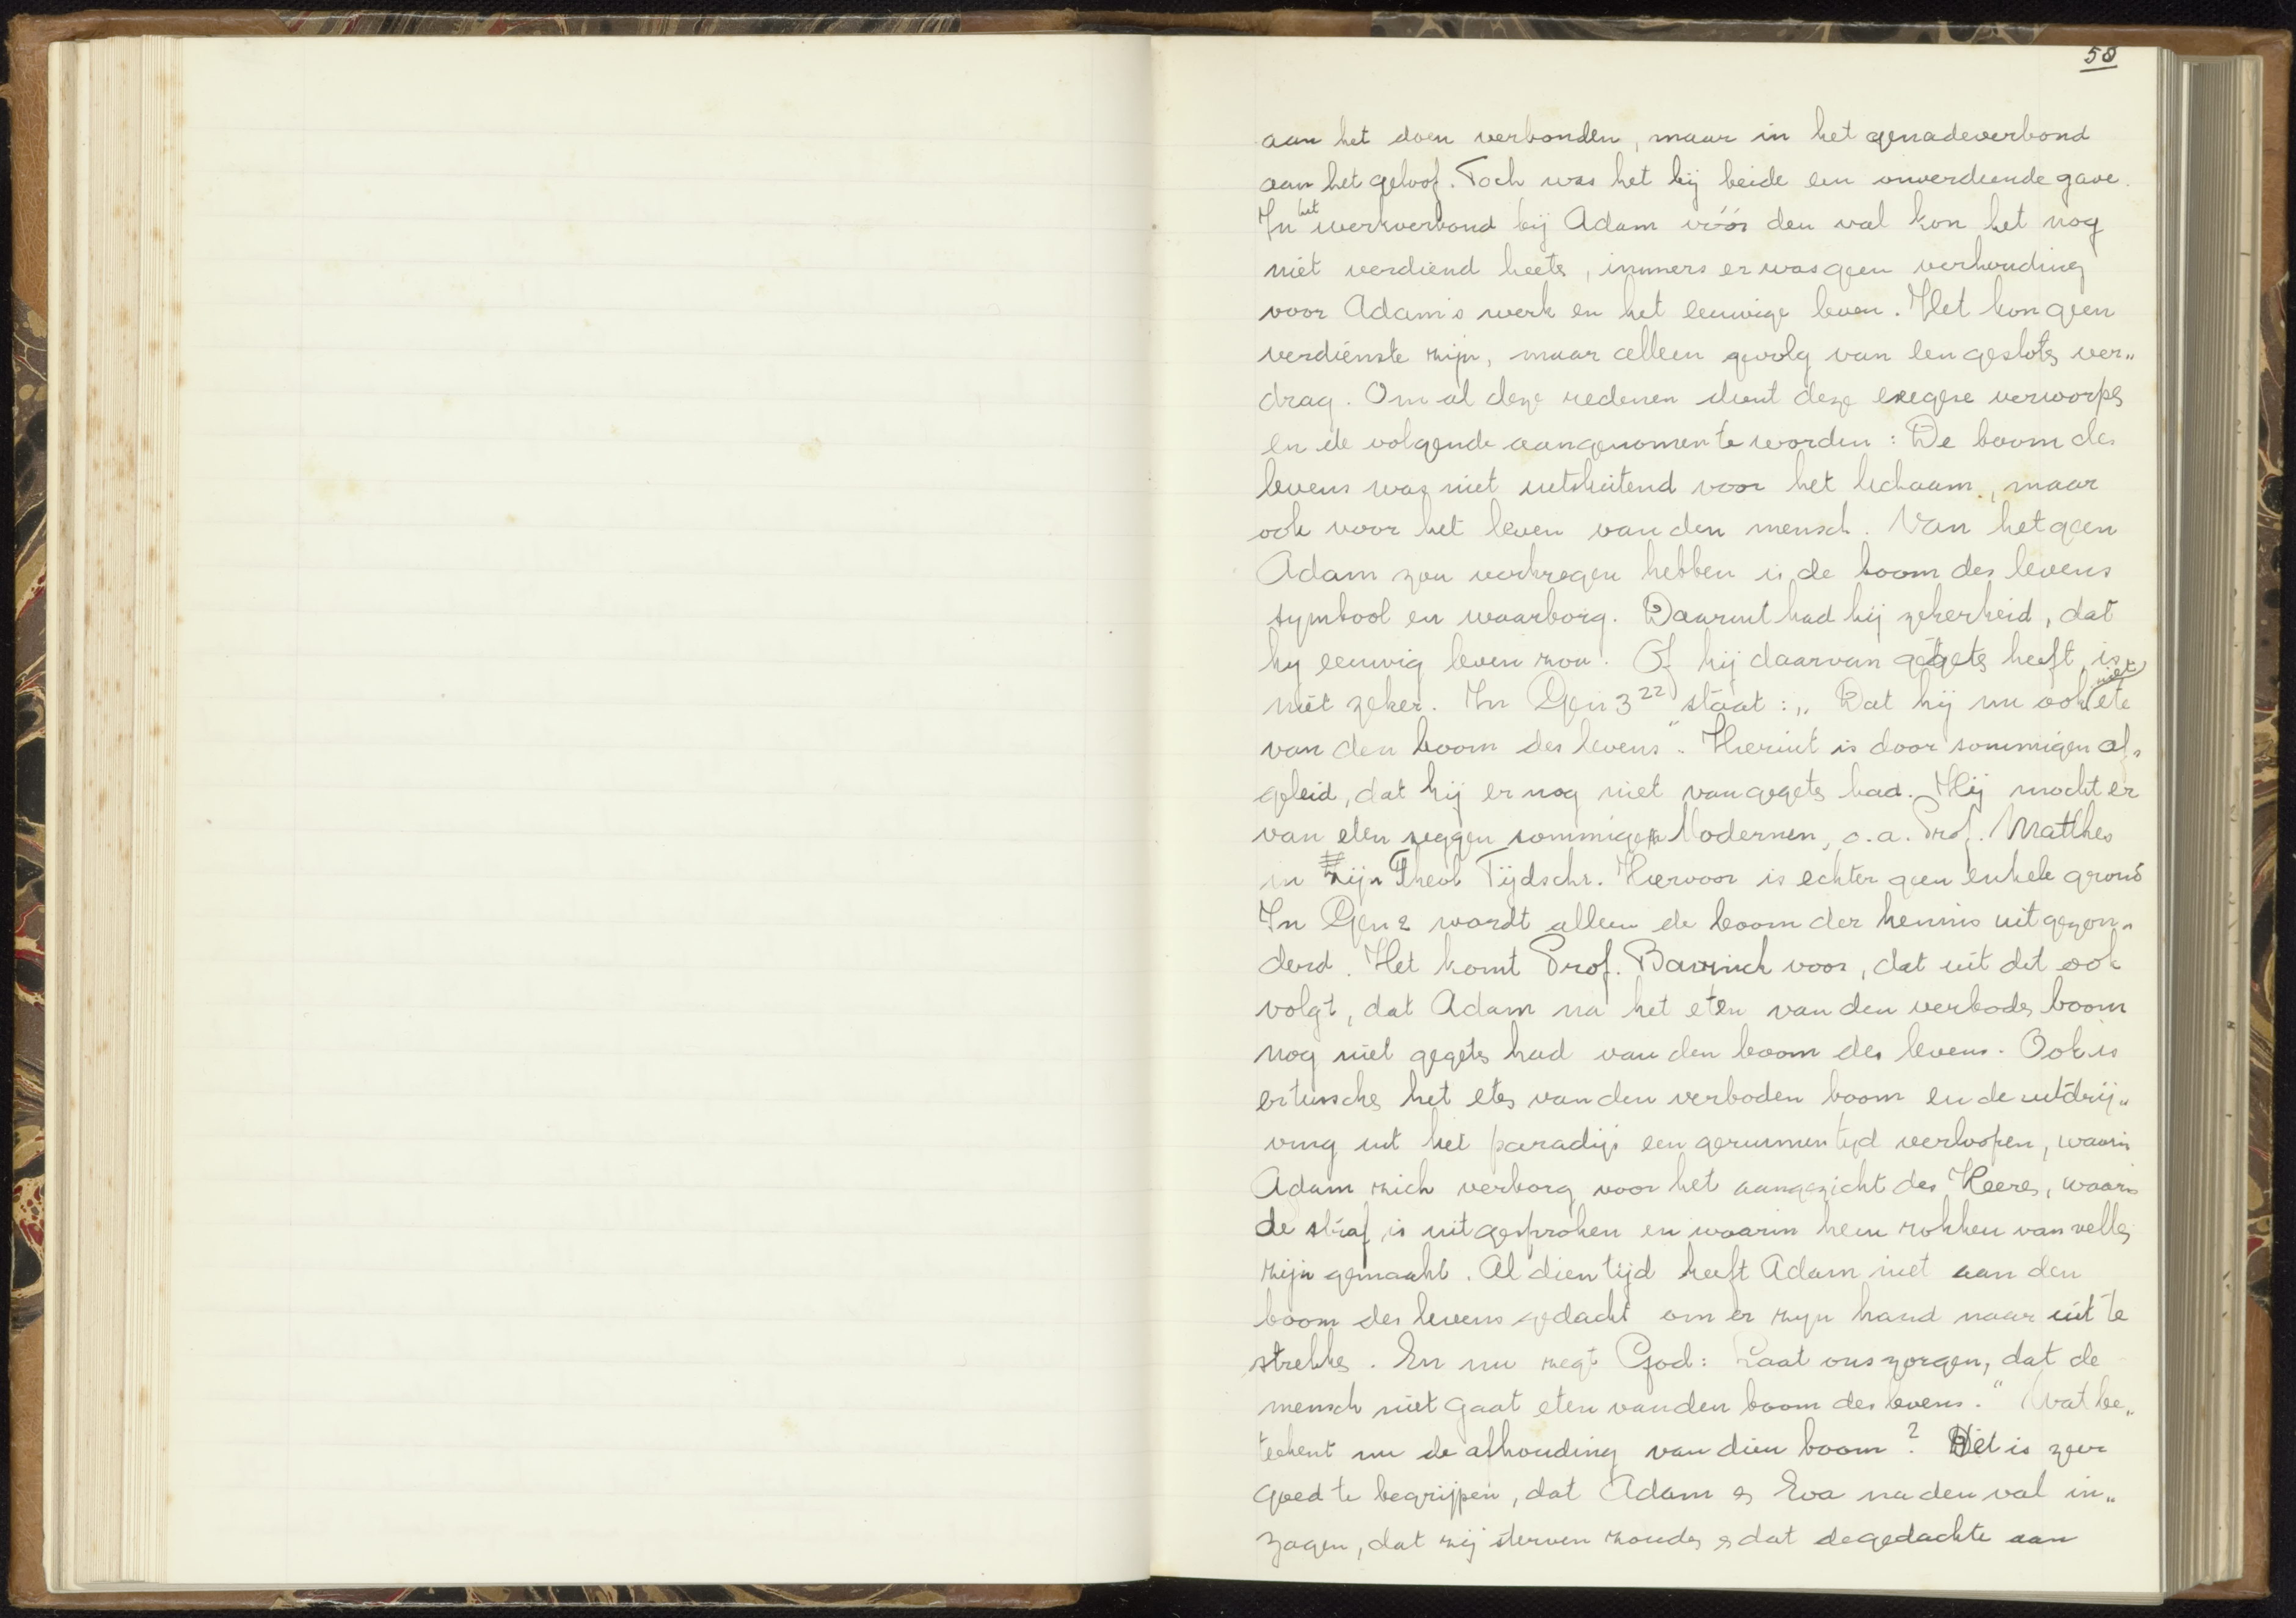 58
aan het doen verbonden, maar in het genadeverbond
aan het geloof. Toch was het bij beide een onverdiende gave.
In het werkverbond bij Adam vóór den val kon het nog
niet verdiend heeten, immers er was geen verhouding
voor Adam's werk en het eeuwige leven. Het kon geen
verdienste zijn, maar alleen gevolg van een gesloten ver„
drag. Om al deze redenen dient deze exegese verworpen
en de volgende aangenomen te worden: De boom des
levens was niet uitsluitend voor het lichaam, maar
ook voor het leven van den mensch. Van hetgeen
Adam zou verkregen hebben is de boom des levens
symbool en waarborg. Daaruit had hij zekerheid, dat
hij eeuwig leven zou. Of hij daarvan gegeten heeft, is
niet zeker. In Gen 3 22 staat: „Dat hij nu ook niet ete
van den boom des levens". Hieruit is door sommigen af„
geleid, dat hij er nog niet van gegeten had. Hij mocht er
van eten zeggen sommige Modernen, o.a. Prof. Matthes
in zijn Theol Tijdschr. Hiervoor is echter geen enkele grond
In Gen 2 wordt alleen de boom der kennis uitgezon„
derd. Het komt Prof. Bavinck voor, dat uit dit ook
volgt, dat Adam na het eten van den verboden boom
nog niet gegeten had van den boom des levens. Ook is
er tusschen het eten van den verboden boom en de uitdrij„
ving uit het paradijs een geruimen tijd verloopen, waarin
Adam zich verborg voor het aangezicht des Heeren, waarin
de straf is uitgesproken en waarin hem rokken van vellen
zijn gemaakt. Al dien tijd heeft Adam niet aan den
boom des levens gedacht om er zijn hand naar uit te
strekken. En nu zegt God: Laat ons zorgen, dat de
mensch niet gaat eten van den boom des levens." Wat be„
teekent nu de afhouding van dien boom? Dit is zeer
goed te begrijpen, dat Adam en Eva na den val in„
zagen, dat zij sterven zouden en dat de gedachte aan